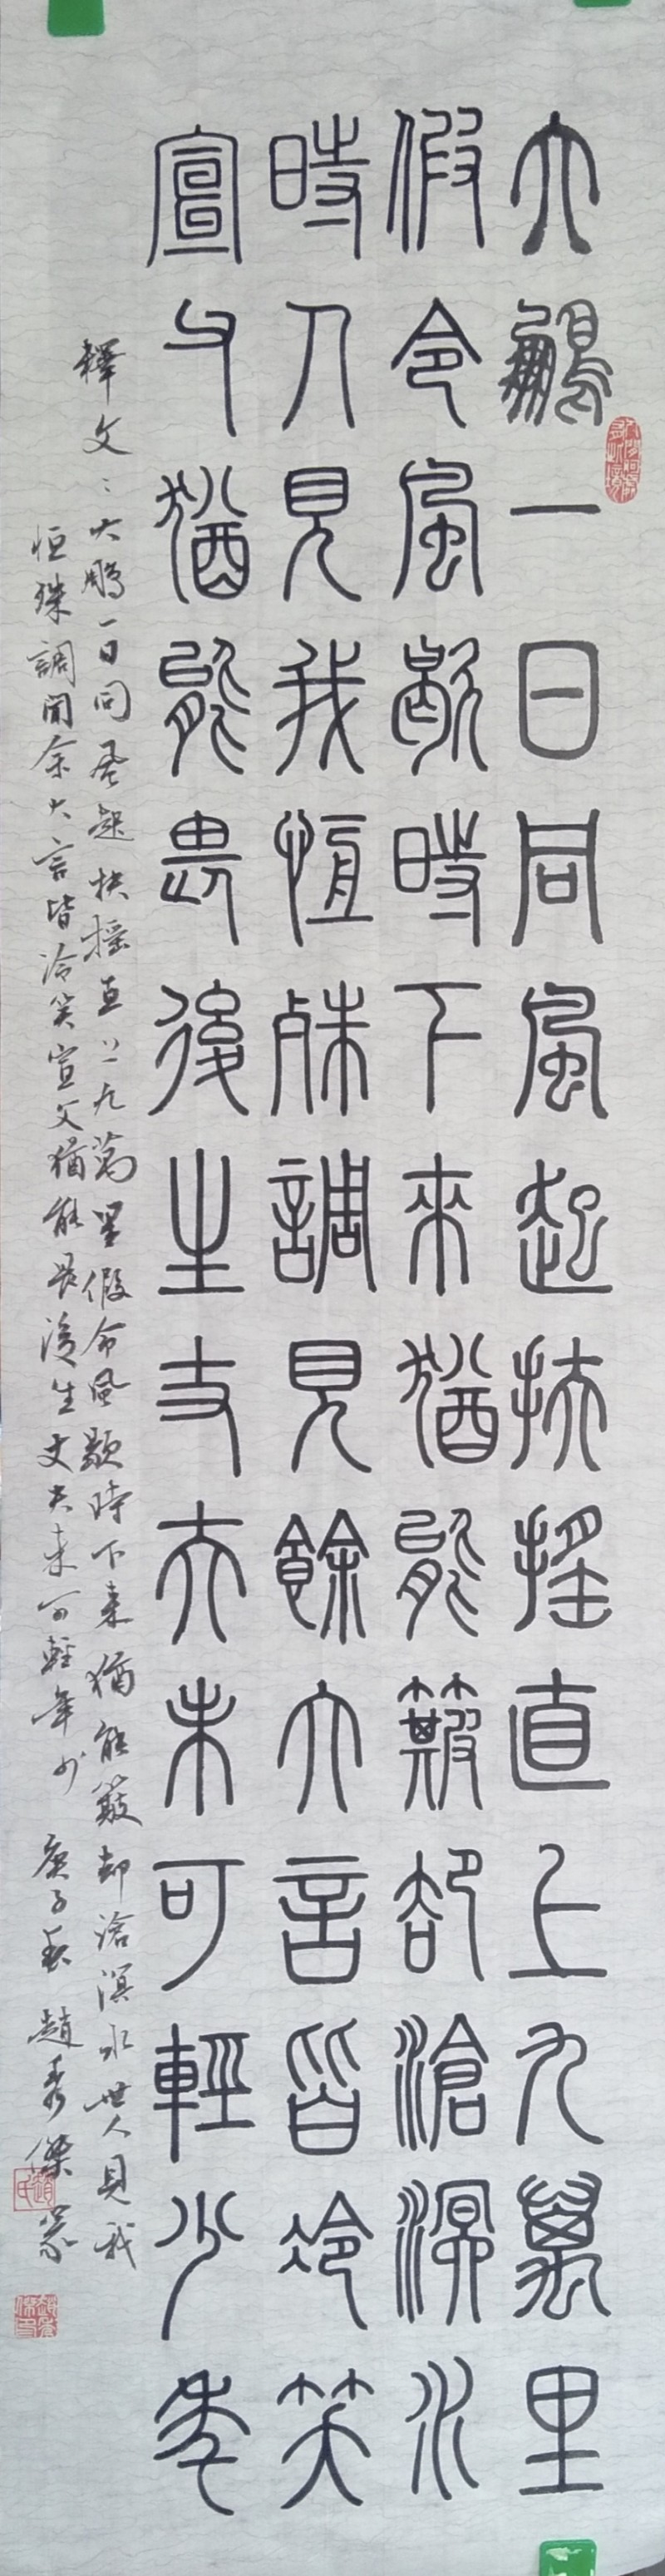 大鵬一日同風起扶搖直上九萬里
假令風歇時下來猶能簸卻滄溟水
時人見我恆殊調見餘大言皆冷笑
宣父猶能畏後生丈夫未可輕少年
釋文：大鵬一日同風起扶搖直上九萬里假令風歇時下來猶能簸却滄溟水世人見我
恒殊調聞余大言皆冷笑宣父猶能畏後生丈夫未可輕年少 庚子春趙秀傑篆